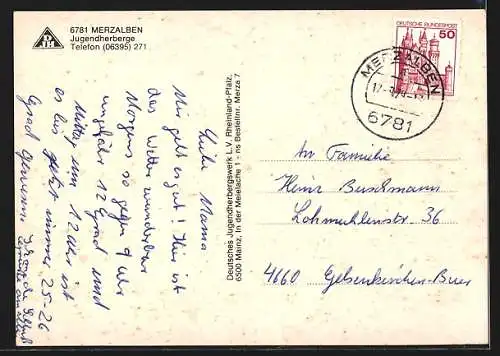 6781 MERZALBEN
Jugendherberge
Telefon (06395) 271
DJH
Liebe Mama
Mir geht es gut! Hier ist
das Wetter wunderbar
Morgens so gegen 9 Uhr
ungefähr 12 Grad und
Mittag um 12 Uhr ist
es bis jetzt immer 25-26
Grad
Deutsches Jugendherbergswerk L.V. Rheinland-Pfalz.
6500 Mainz, In der Meielache 1 - ns Bestellnr. Merza 7
DEUTSCHE BUNDESPOST
50
MERZALBEN
6781
An Familie
Heinz Buschmann
Lohmühlenstr. 36
4660 Gelsenkirchen-Buer